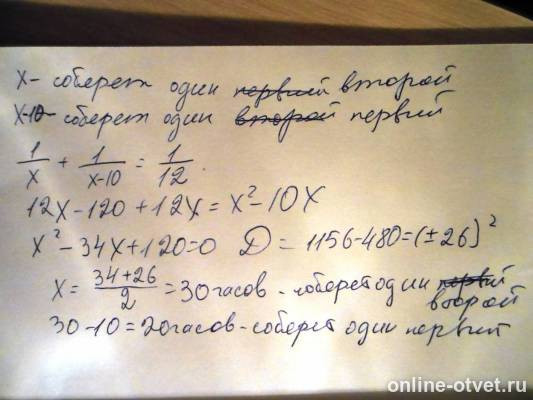 x - соберет один первий второй
x-10 соберет один второй первий
1/x + 1/(x-10) = 1/12
12x - 120 + 12x = x² - 10x
x² - 34x + 120 = 0 D = 1156 - 480 = (±26)²
x = (34+26)/2 = 30 часов - соберет один первий второй
30 - 10 = 20 часов - соберет один первий
online-otvet.ru